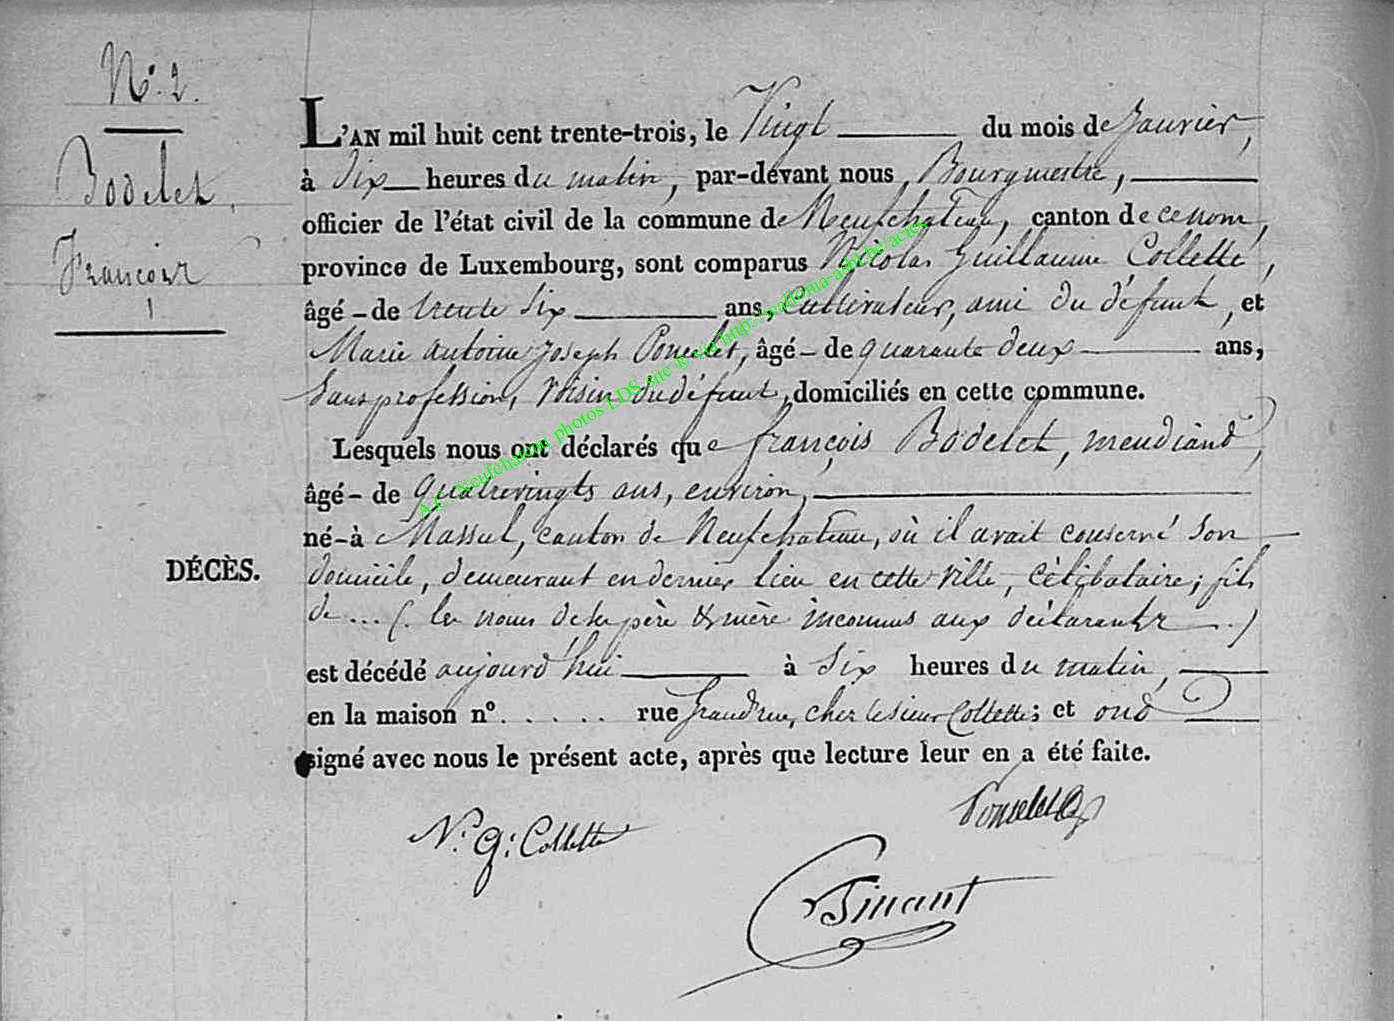 N.° 2.
Bodelet,
François
DÉCÈS.
L'AN mil huit cent trente-trois, le Vingt du mois de Janvier,
à Dix heures du matin, par-devant nous, Bourgmestre,
officier de l'état civil de la commune de Neufchateau, canton de ce nom,
province de Luxembourg, sont comparus Nicolas Guillaume Collette,
âgé - de trente six ans, Cultivateur, ami du défunt, et
Marie antoine Joseph Poncelet, âgé - de quarante deux ans,
Sans profession, Voisin du défunt, domiciliés en cette commune.
Lesquels nous ont déclarés que françois Bodelet, mendiand,
âgé - de quatrevingts ans, environ,
né - à Massul, canton de Neufchateau, où il avait conservé son
domicile, demeurant en dernier lieu en cette ville, célibataire; fils
de ... (les noms de ses père & mère inconnus aux déclarants ..)
est décédé aujourd'hui à Six heures du matin,
en la maison n°. . . . . . rue Grandrue, chez le sieur Collette; et ond
signé avec nous le présent acte, après que lecture leur en a été faite.
N. G: Collette
Poncelet
Tinant
A.C. Neufchateau photos LDS site @ via http://wallonia-asbl.be/actes